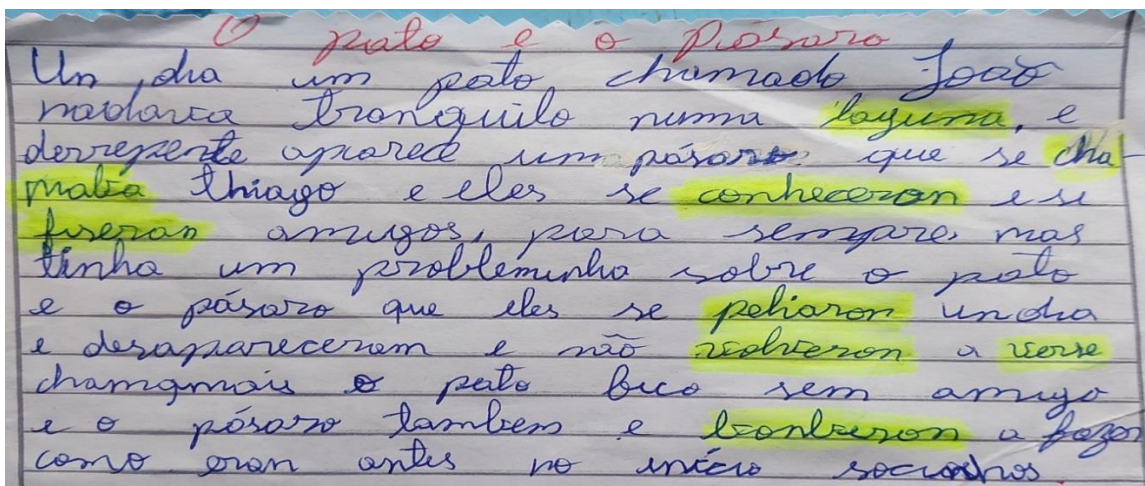 O pato e o Pásaro
Un dia um pato chamado João
nadava tranquilo numa laguna, e
derrepente aparece um pásaro que se cha
maba thiago e eles se conheceron e se
fiseron amigos, para sempre, mas
tinha um probleminha sobre o pato
e o pásaro que eles se peliaron un dia
e desapareceram e não volveron a verse
chamgmais o pato fico sem amigo
e o pásaro tambem e a fazer
como eran antes no início